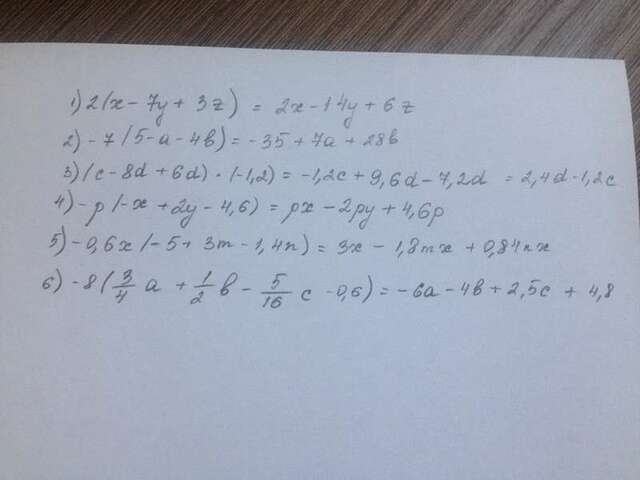 1) 2(x - 7y + 3z) = 2x - 14y + 6z
2) -7(5 - a - 4b) = -35 + 7a + 28b
3) (c - 8d + 6d) · (-1,2) = -1,2c + 9,6d - 7,2d = 2,4d - 1,2c
4) -p(-x + 2y - 4,6) = px - 2py + 4,6p
5) -0,6x(-5 + 3m - 1,4n) = 3x - 1,8mx + 0,84nx
6) -8(3/4 a + 1/2 b - 5/16 c - 0,6) = -6a - 4b + 2,5c + 4,8